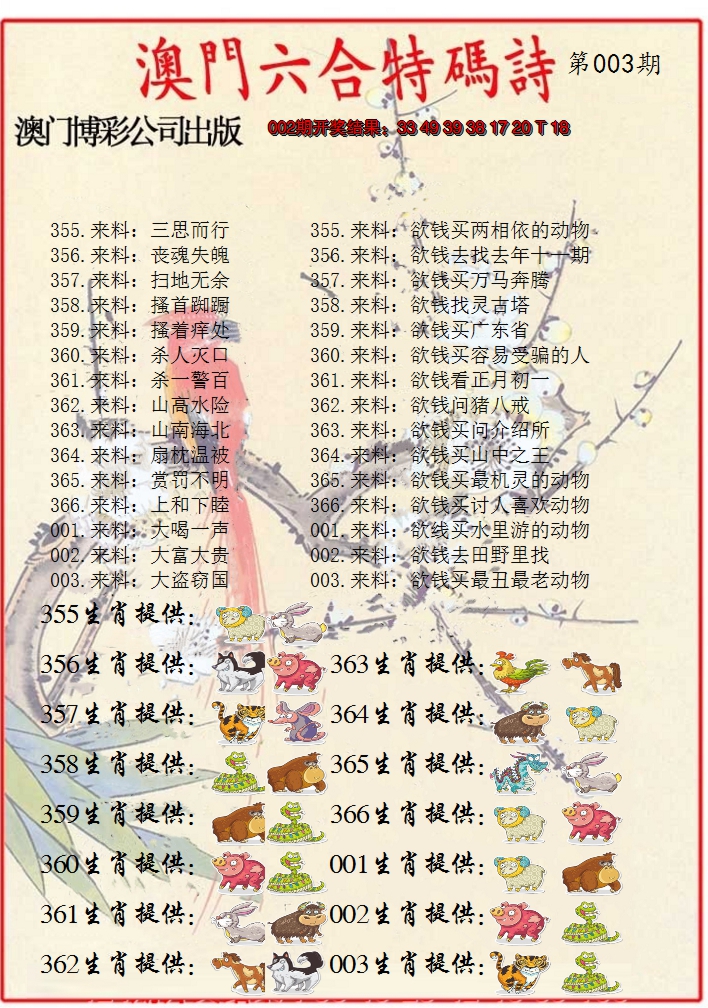 澳門六合特碼詩 第003期
澳门博彩公司出版 002期开奖结果：33 49 39 38 17 20 T 18
355.来料：三思而行 355.来料：欲钱买两相依的动物
356.来料：丧魂失魄 356.来料：欲钱去找去年十一期
357.来料：扫地无余 357.来料：欲钱买万马奔腾
358.来料：搔首踟蹰 358.来料：欲钱找灵古塔
359.来料：搔着痒处 359.来料：欲钱买广东省
360.来料：杀人灭口 360.来料：欲钱买容易受骗的人
361.来料：杀一警百 361.来料：欲钱看正月初一
362.来料：山高水险 362.来料：欲钱问猪八戒
363.来料：山南海北 363.来料：欲钱买问介绍所
364.来料：扇枕温被 364.来料：欲钱买山中之王
365.来料：赏罚不明 365.来料：欲钱买最机灵的动物
366.来料：上和下睦 366.来料：欲钱买讨人喜欢动物
001.来料：大喝一声 001.来料：欲线买水里游的动物
002.来料：大富大贵 002.来料：欲钱去田野里找
003.来料：大盗窃国 003.来料：欲钱买最丑最老动物
355生肖提供：
356生肖提供： 363生肖提供：
357生肖提供： 364生肖提供：
358生肖提供： 365生肖提供：
359生肖提供： 366生肖提供：
360生肖提供： 001生肖提供：
361生肖提供： 002生肖提供：
362生肖提供： 003生肖提供：